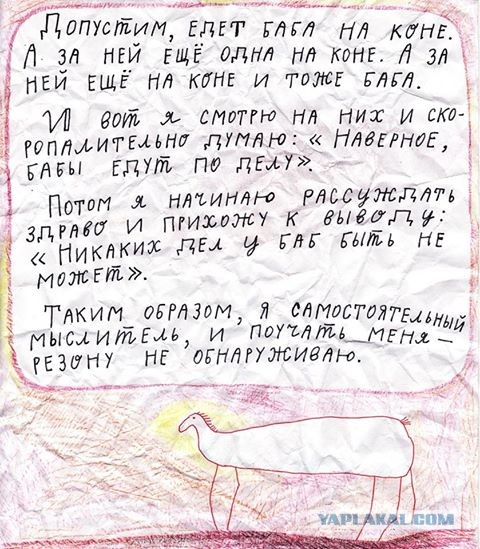 Допустим, едет баба на коне.
А за ней ещё одна на коне. А за
ней ещё на коне и тоже баба.
И вот я смотрю на них и ско-
ропалительно думаю: «Наверное,
бабы едут по делу».
Потом я начинаю рассуждать
здраво и прихожу к выводу:
«Никаких дел у баб быть не
может».
Таким образом, я самостоятельный
мыслитель, и поучать меня —
резону не обнаруживаю.
YAPLAKAL.COM